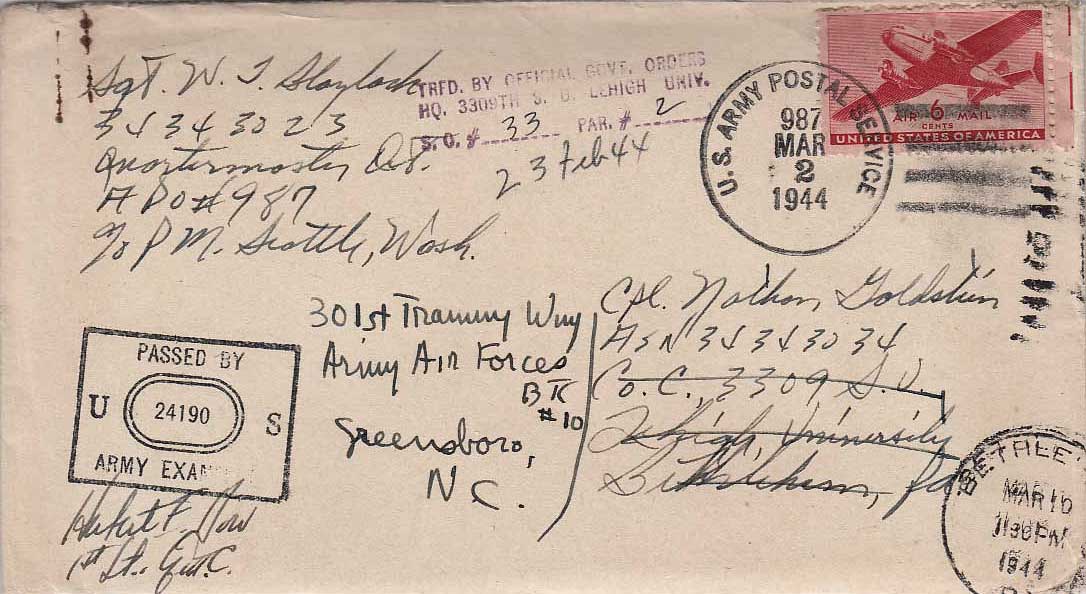 Sgt. W. T. Slaylock
34343023
Quartermaster Det.
APO #987
c/o P.M. Seattle, Wash.
TRFD. BY OFFICIAL GOVT. ORDERS
HQ. 3309TH S. U. LEHIGH UNIV.
S. O. # 33 PAR. # 2
23 Feb 44
U.S. ARMY POSTAL SERVICE
987
MAR
2
1944
AIR 6 MAIL
CENTS
UNITED STATES OF AMERICA
PASSED BY
U 24190 S
ARMY EXAM
1st Lt. Q.M.C.
301st Training Wing
Army Air Forces
#10
Greensboro,
N C.
Cpl. Nathan Goldstein
ASN 34343034
Co. C., 3309 S.U.
Lehigh University
Bethlehem, Pa
BETHLEHE
MAR 16
11 30 PM
1944